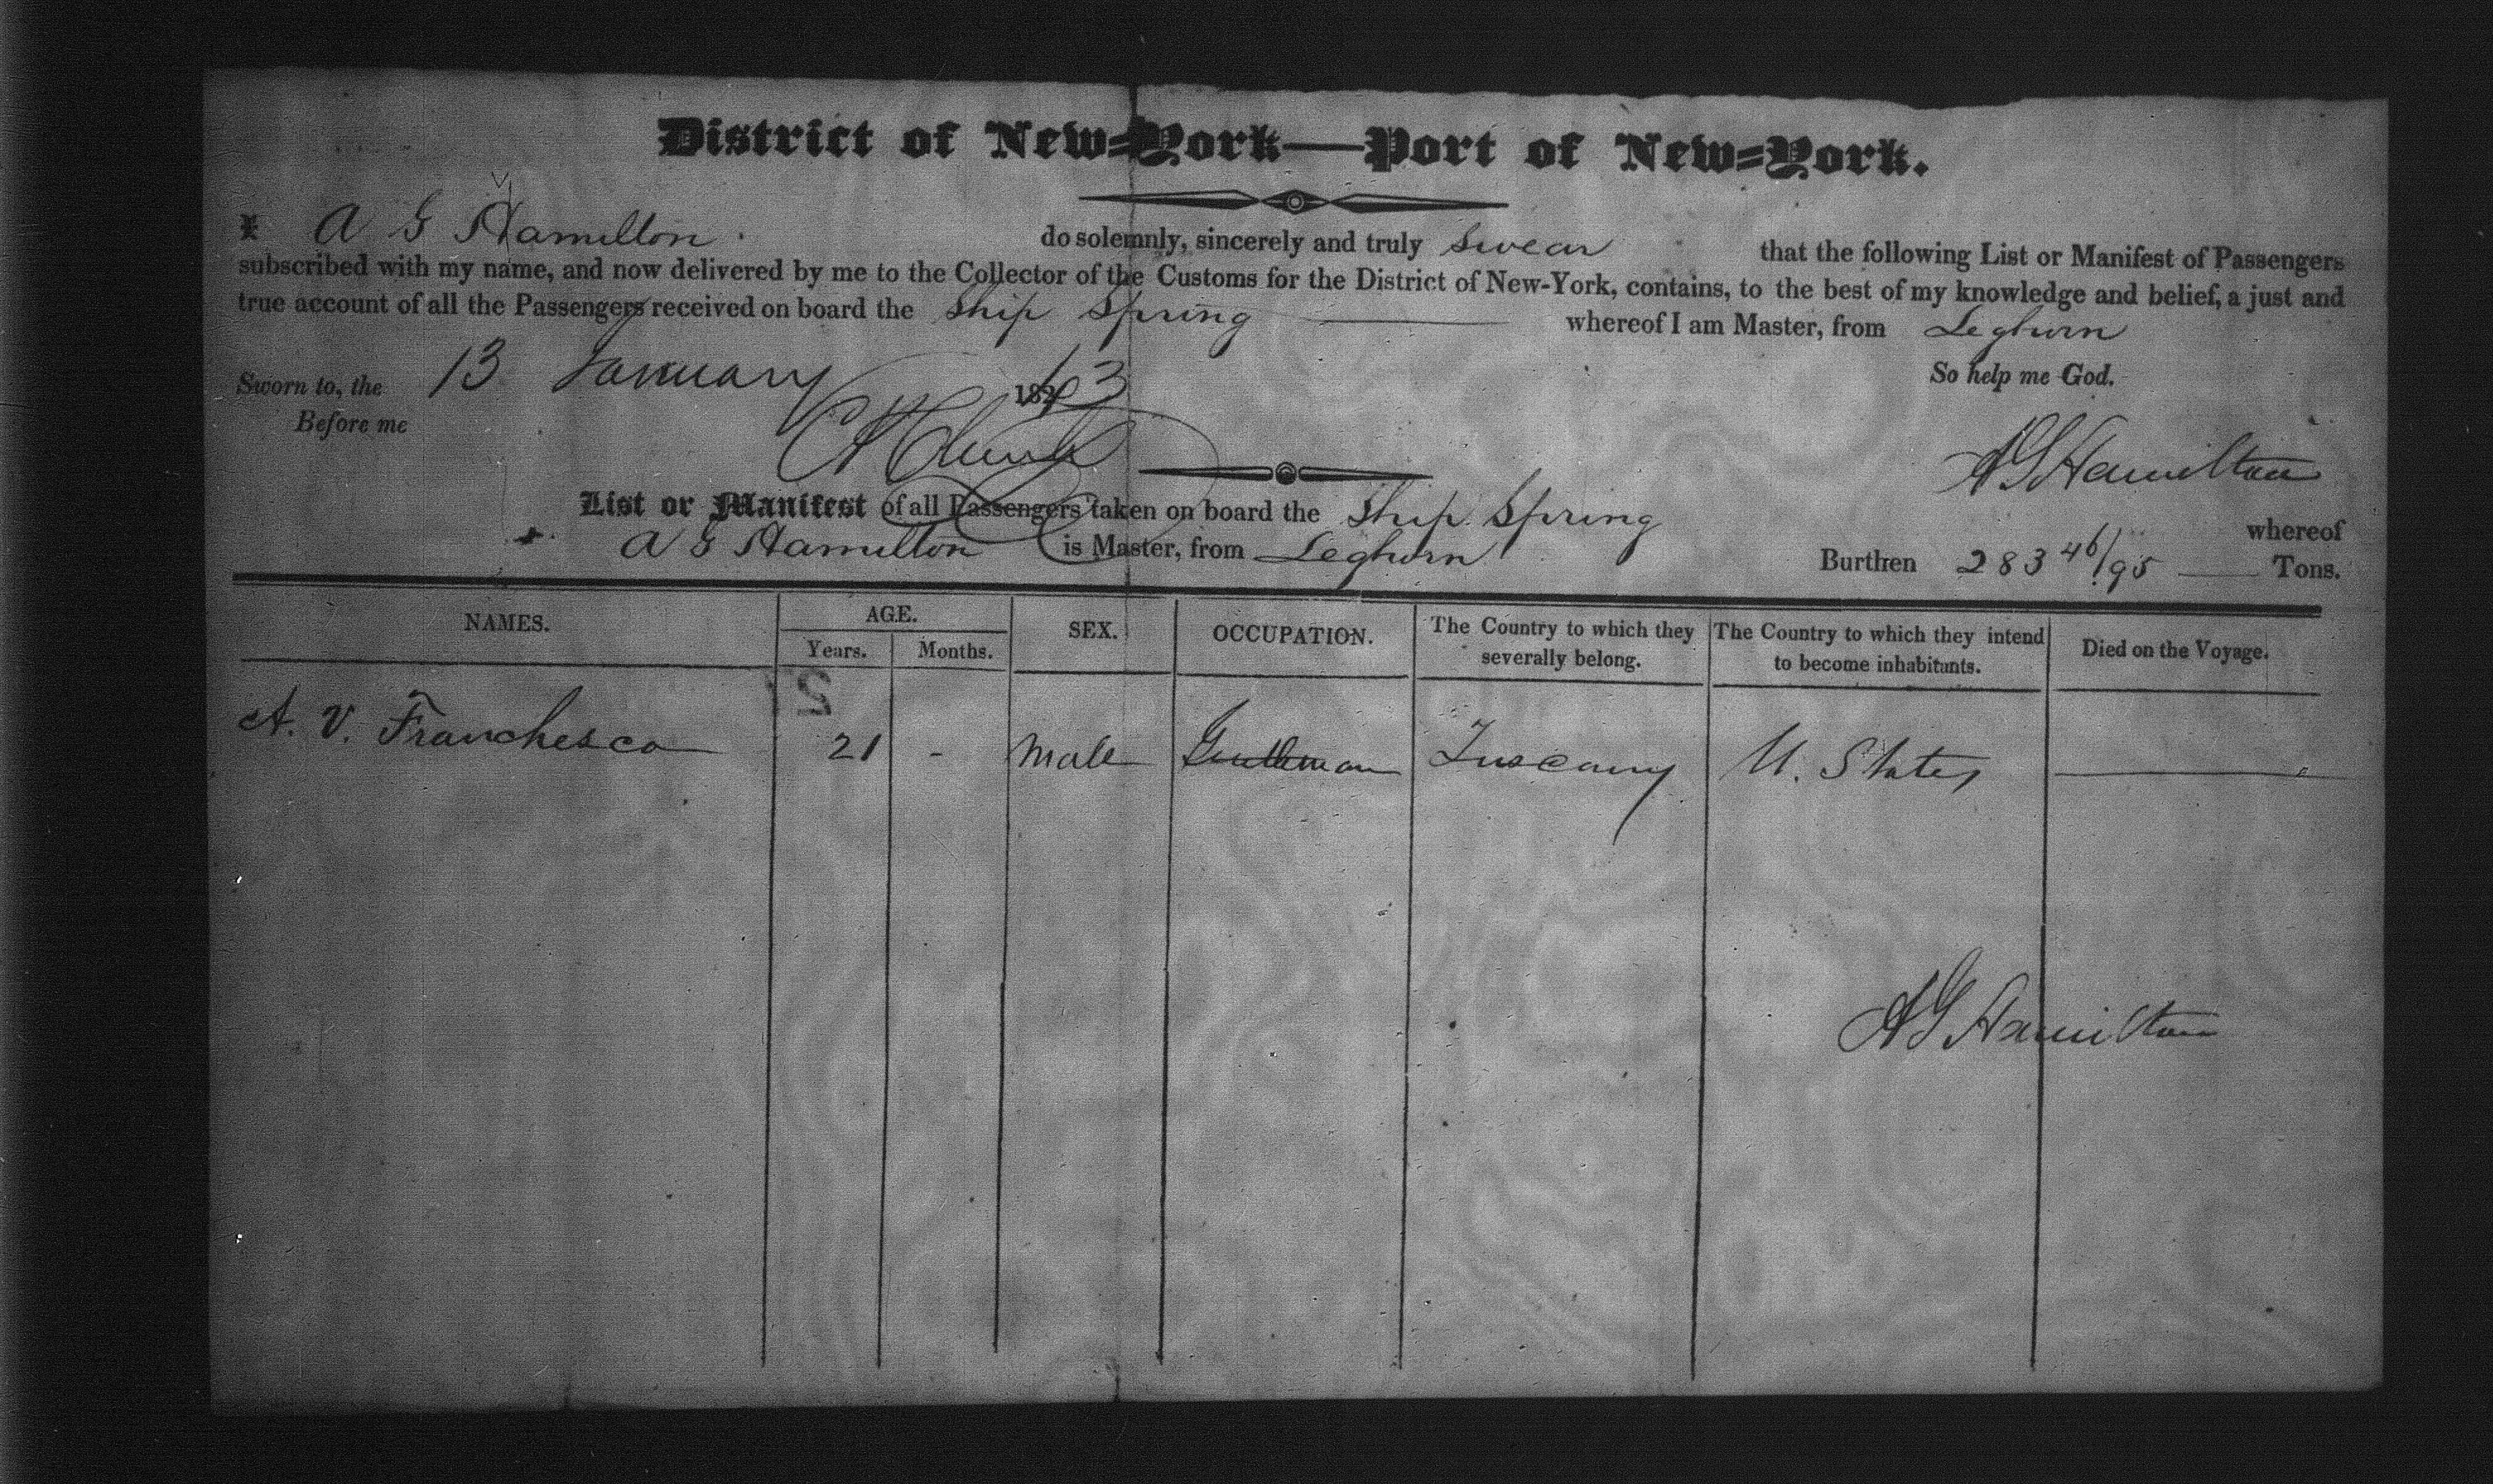 District of New=York—Port of New=York.
I A G Hamilton do solemnly, sincerely and truly swear that the following List or Manifest of Passengers
subscribed with my name, and now delivered by me to the Collector of the Customs for the District of New-York, contains, to the best of my knowledge and belief, a just and
true account of all the Passengers received on board the Ship Spring whereof I am Master, from Leghorn
So help me God.
Sworn to, the 13 January
Before me
A G Hamilton
List or Manifest of all Passengers taken on board the Ship Spring whereof
A G Hamilton is Master, from Leghorn Burthen 283 46/95 Tons.
NAMES. AGE. SEX. OCCUPATION. The Country to which they severally belong. The Country to which they intend to become inhabitants. Died on the Voyage.
Years. Months.
A. V. Franchesco 21 - Male Gentleman Tuscany U. States
A G Hamilton